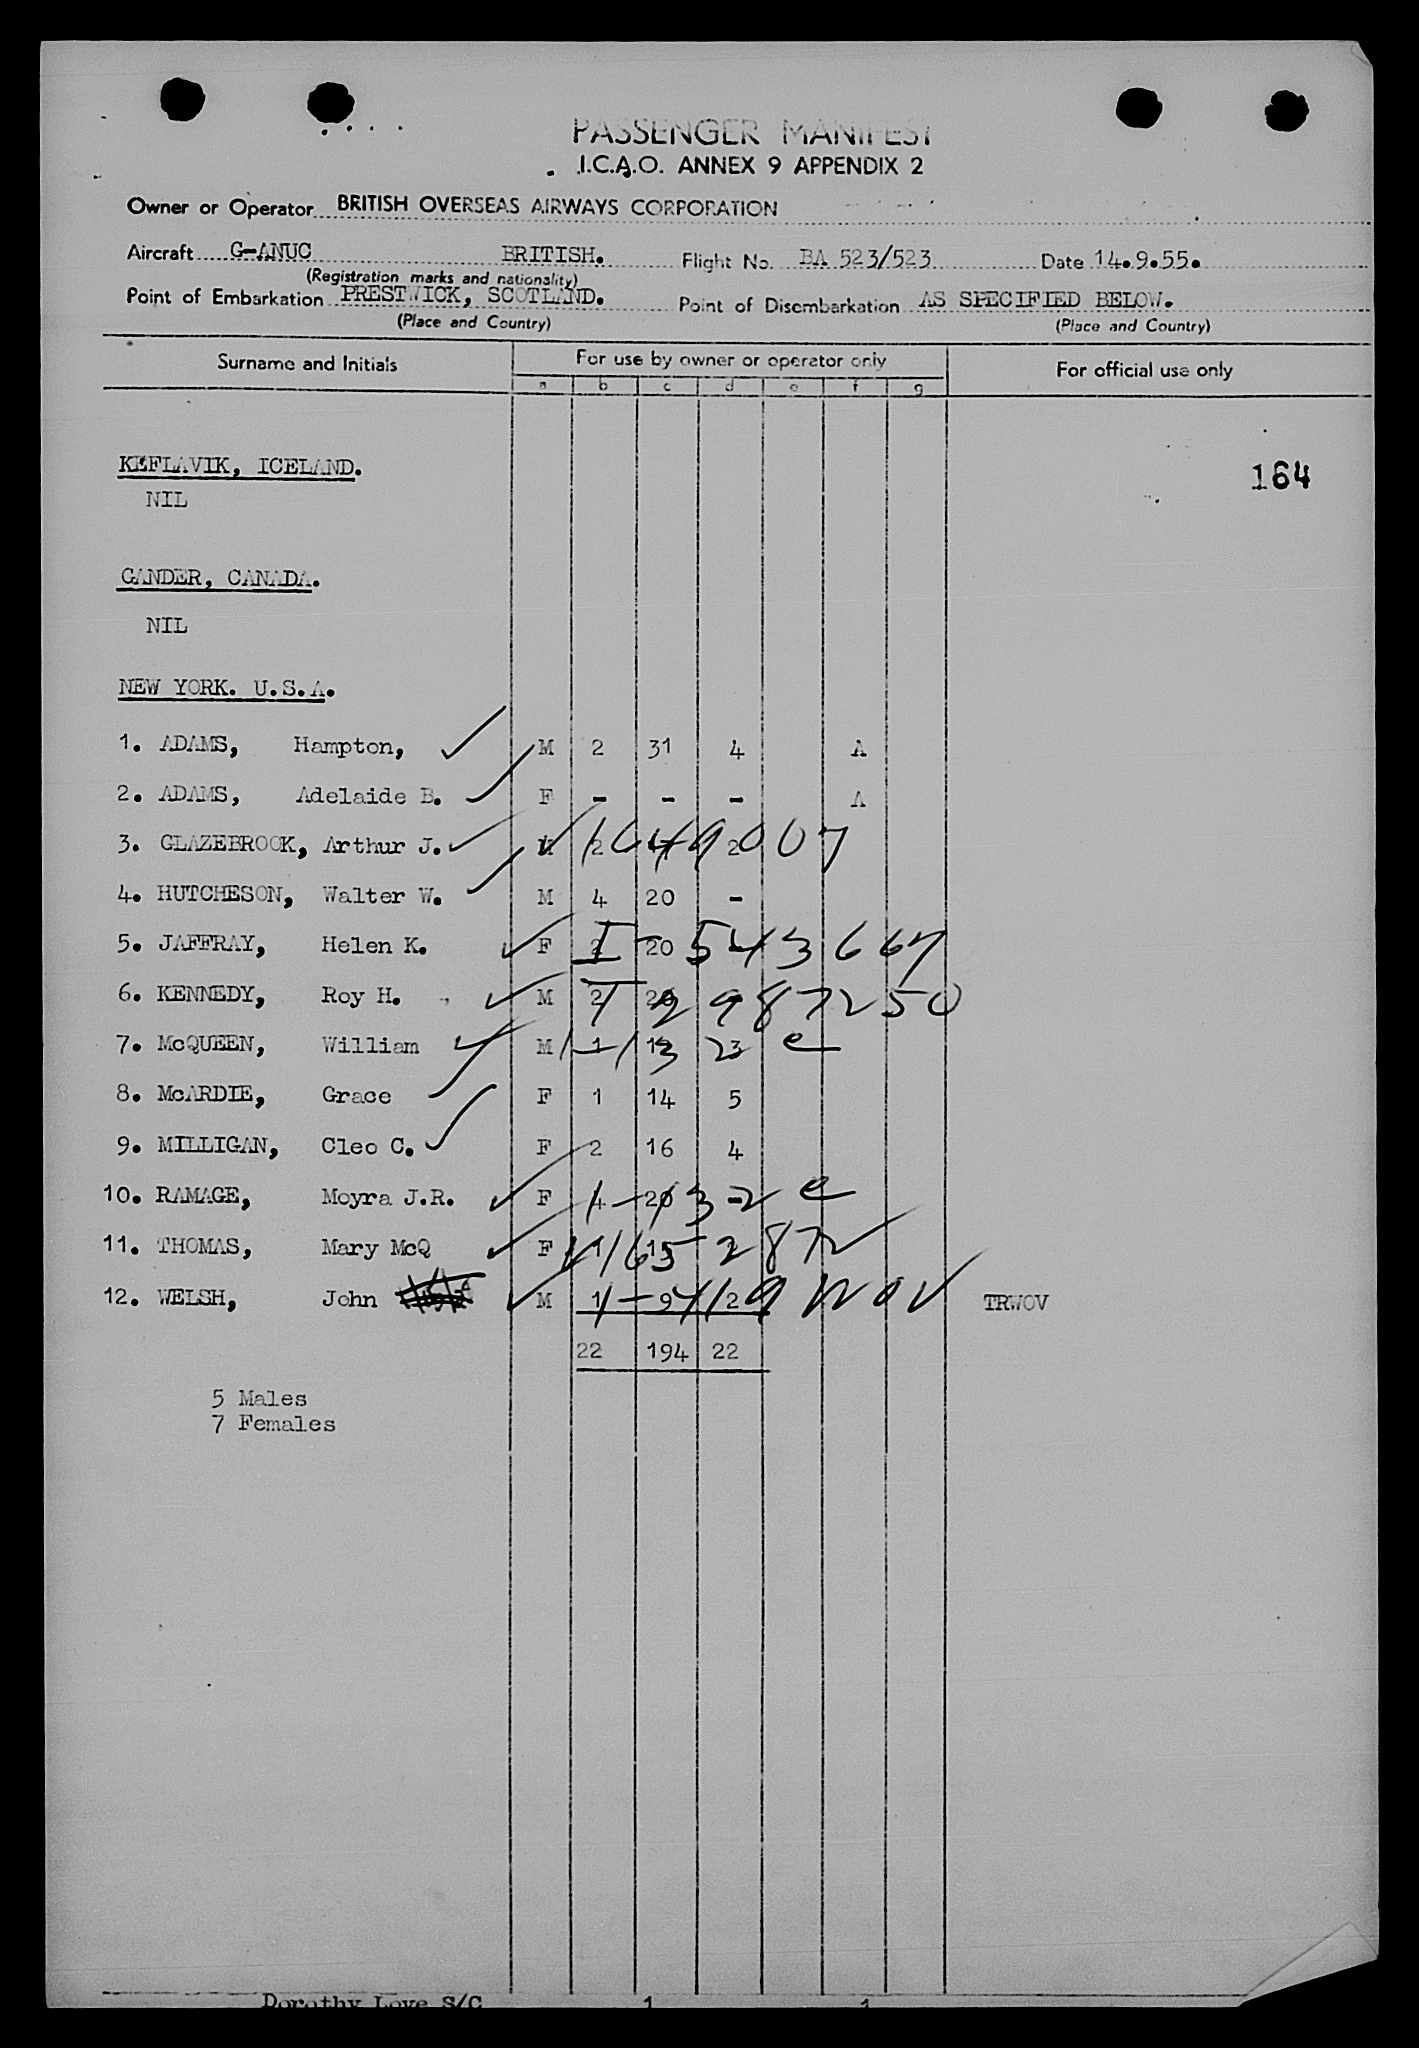 PASSENGER MANIFEST
I.C.A.O. ANNEX 9 APPENDIX 2
Owner or Operator BRITISH OVERSEAS AIRWAYS CORPORATION
Aircraft G-ANUC BRITISH. Flight No. BA 523/523 Date 14.9.55.
(Registration marks and nationality)
Point of Embarkation PRESTWICK, SCOTLAND. Point of Disembarkation AS SPECIFIED BELOW.
(Place and Country) (Place and Country)
Surname and Initials For use by owner or operator only For official use only
a b c d e f g
KEFLAVIK, ICELAND. 164
NIL
GANDER, CANADA.
NIL
NEW YORK. U.S.A.
1. ADAMS, Hampton, M 2 31 4 A
2. ADAMS, Adelaide B. F - - - A
3. GLAZEBROOK, Arthur J. 2 2 1649007
4. HUTCHESON, Walter W. M 4 20 -
5. JAFFRAY, Helen K. F 2 20 I-543667
6. KENNEDY, Roy H. M 2 20 I 2987250
7. McQUEEN, William M 1 3 1-132 e
8. McARDIE, Grace F 1 14 5
9. MILLIGAN, Cleo C. F 2 16 4
10. RAMAGE, Moyra J.R. F 4 20 - 1-132 e
11. THOMAS, Mary McQ F 1 1652872
12. WELSH, John M 1 9 2 TRWOV
22 194 22
5 Males
7 Females
Dorothy Love S/C 1 1